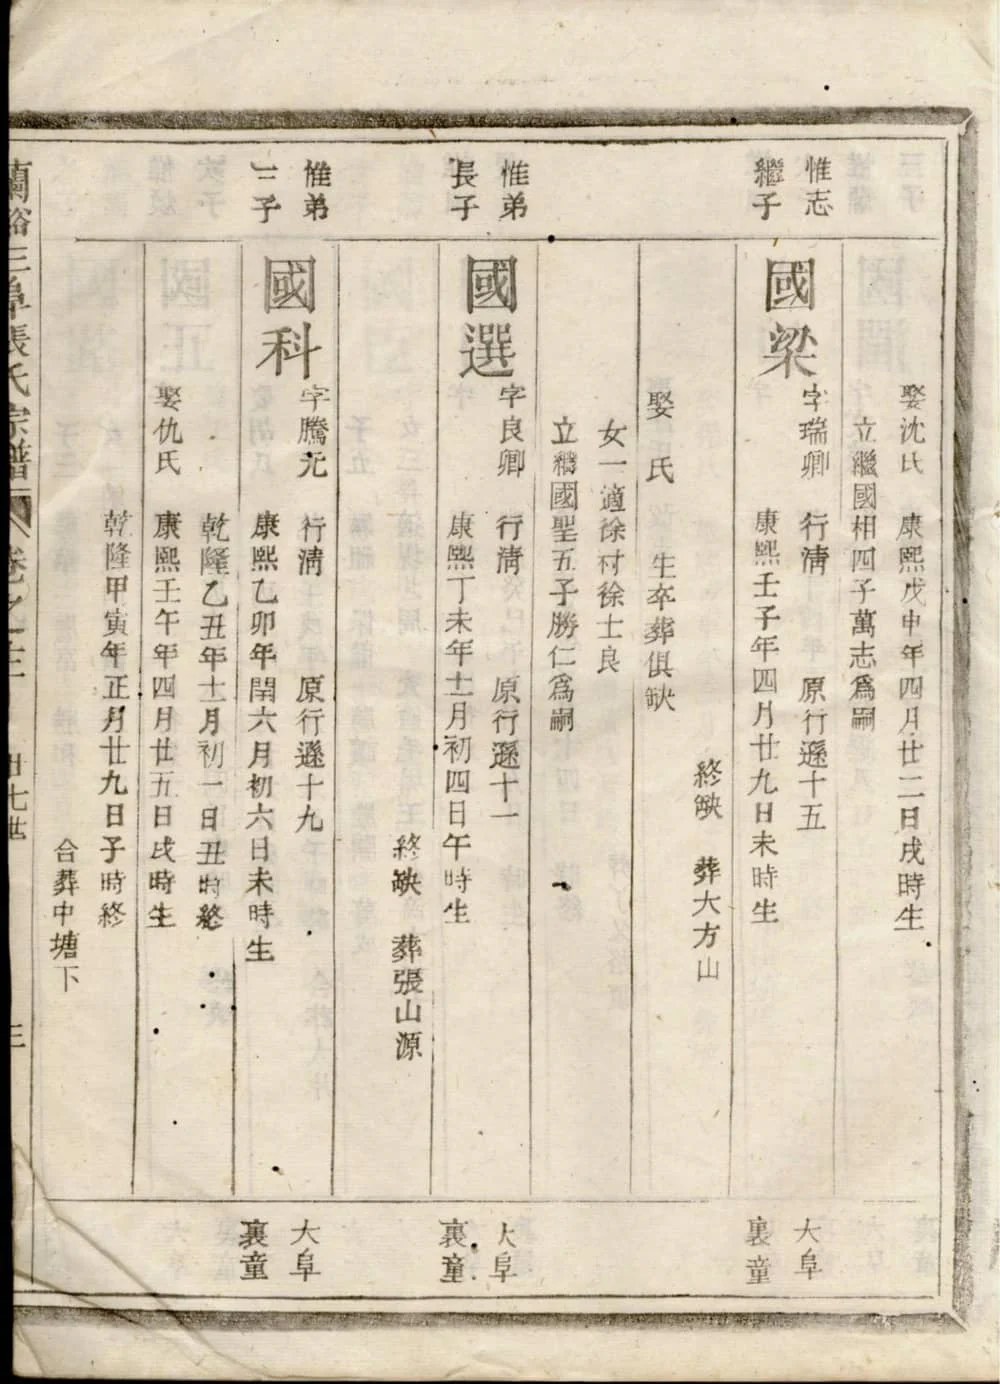 娶沈氏 康熙戊申年四月廿二日戌時生
立繼國相四子萬志爲嗣
惟志
繼子
國梁
字瑞卿 行淸 原行遜十五
康熙壬子年四月廿九日未時生
終缺 葬大方山
大阜
裏童
娶 氏 生卒葬俱缺
女一適徐村徐士良
立繼國聖五子勝仁爲嗣
惟弟
長子
國選
字良卿 行淸 原行遜十一
康熙丁未年十一月初四日午時生
終缺 葬張山源
大阜
裏童
惟弟
二子
國科
字騰元 行淸 原行遜十九
康熙乙卯年閏六月初六日未時生
乾隆乙丑年十一月初一日丑時終
大阜
裏童
娶仇氏 康熙壬午年四月廿五日戌時生
乾隆甲寅年正月廿九日子時終
合葬中塘下
蘭谿三阜張氏宗譜 卷之 廿七世 三